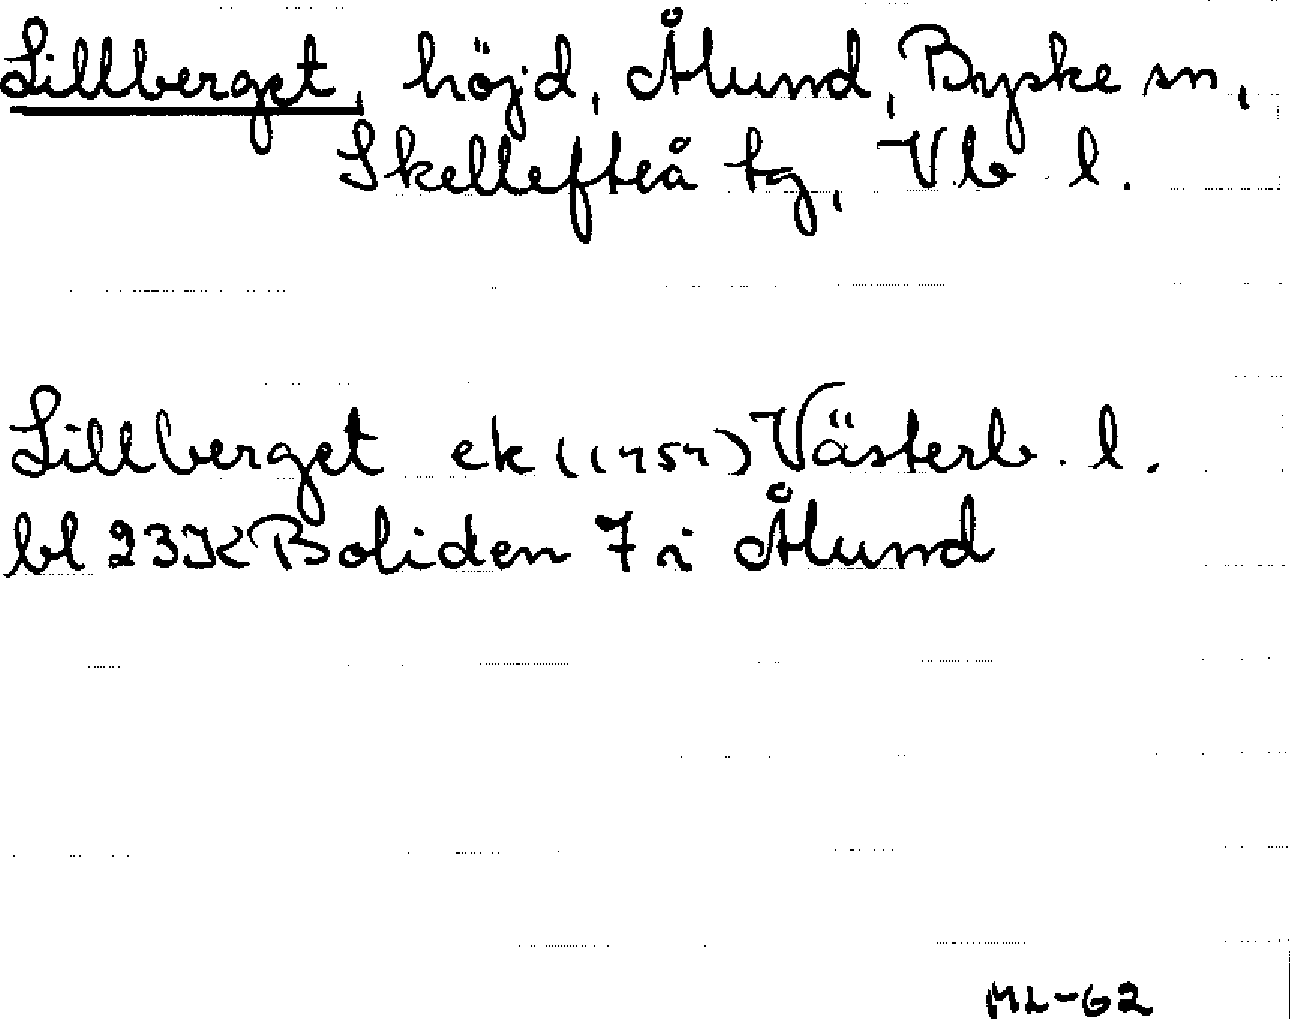 Lillberget, höjd, Ålund, Byske sn,
Skellefteå tg, Vb l.
Lillberget ek (1959) Västerb. l.
bl 23K Boliden 7 i Ålund
ML-62